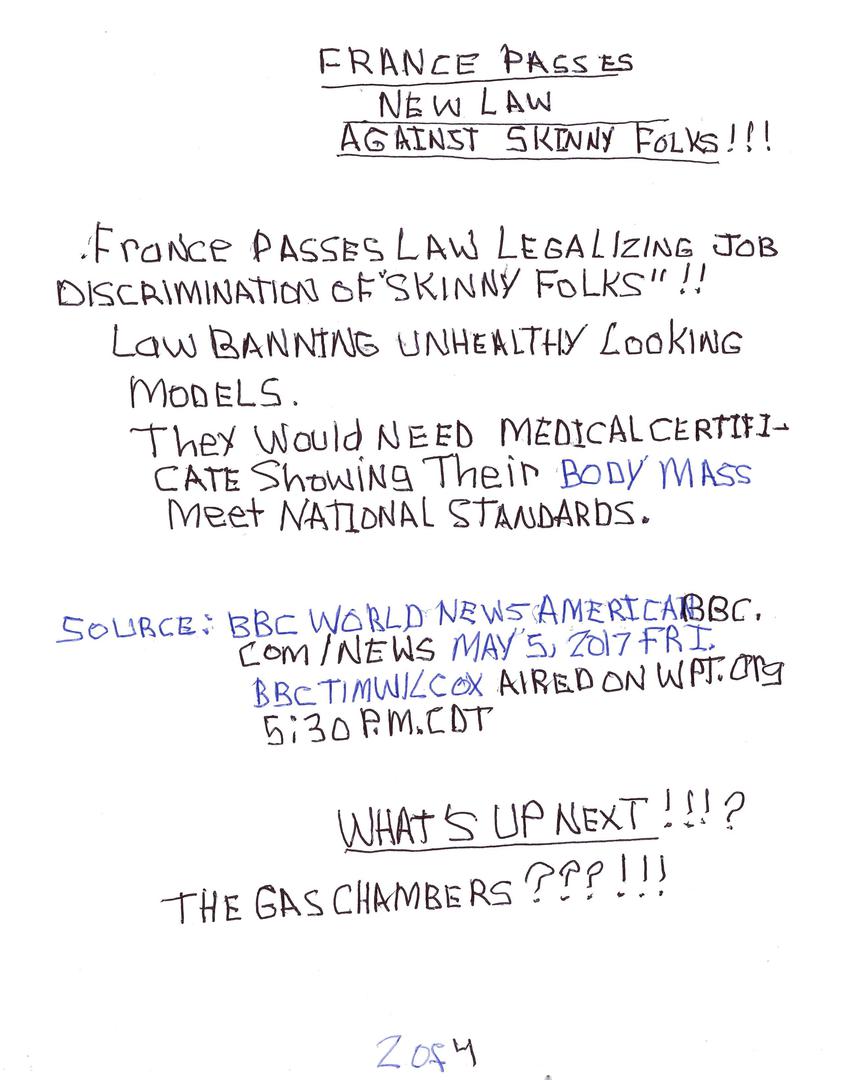 FRANCE PASSES
NEW LAW
AGAINST SKINNY FOLKS!!!
.France PASSES LAW LEGALIZING JOB
DISCRIMINATION OF "SKINNY FOLKS"!!
LAW BANNING UNHEALTHY LOOKING
MODELS.
They Would NEED MEDICAL CERTIFI-
CATE Showing Their BODY MASS
Meet NATIONAL STANDARDS.
SOURCE: BBC WORLD NEWS AMERICA BBC.
COM/NEWS MAY 5, 2017 FRI.
BBC TIM WILCOX AIRED ON WPT.org
5:30 P.M. CDT
WHAT'S UP NEXT!!!?
THE GAS CHAMBERS???!!!
2 of 4